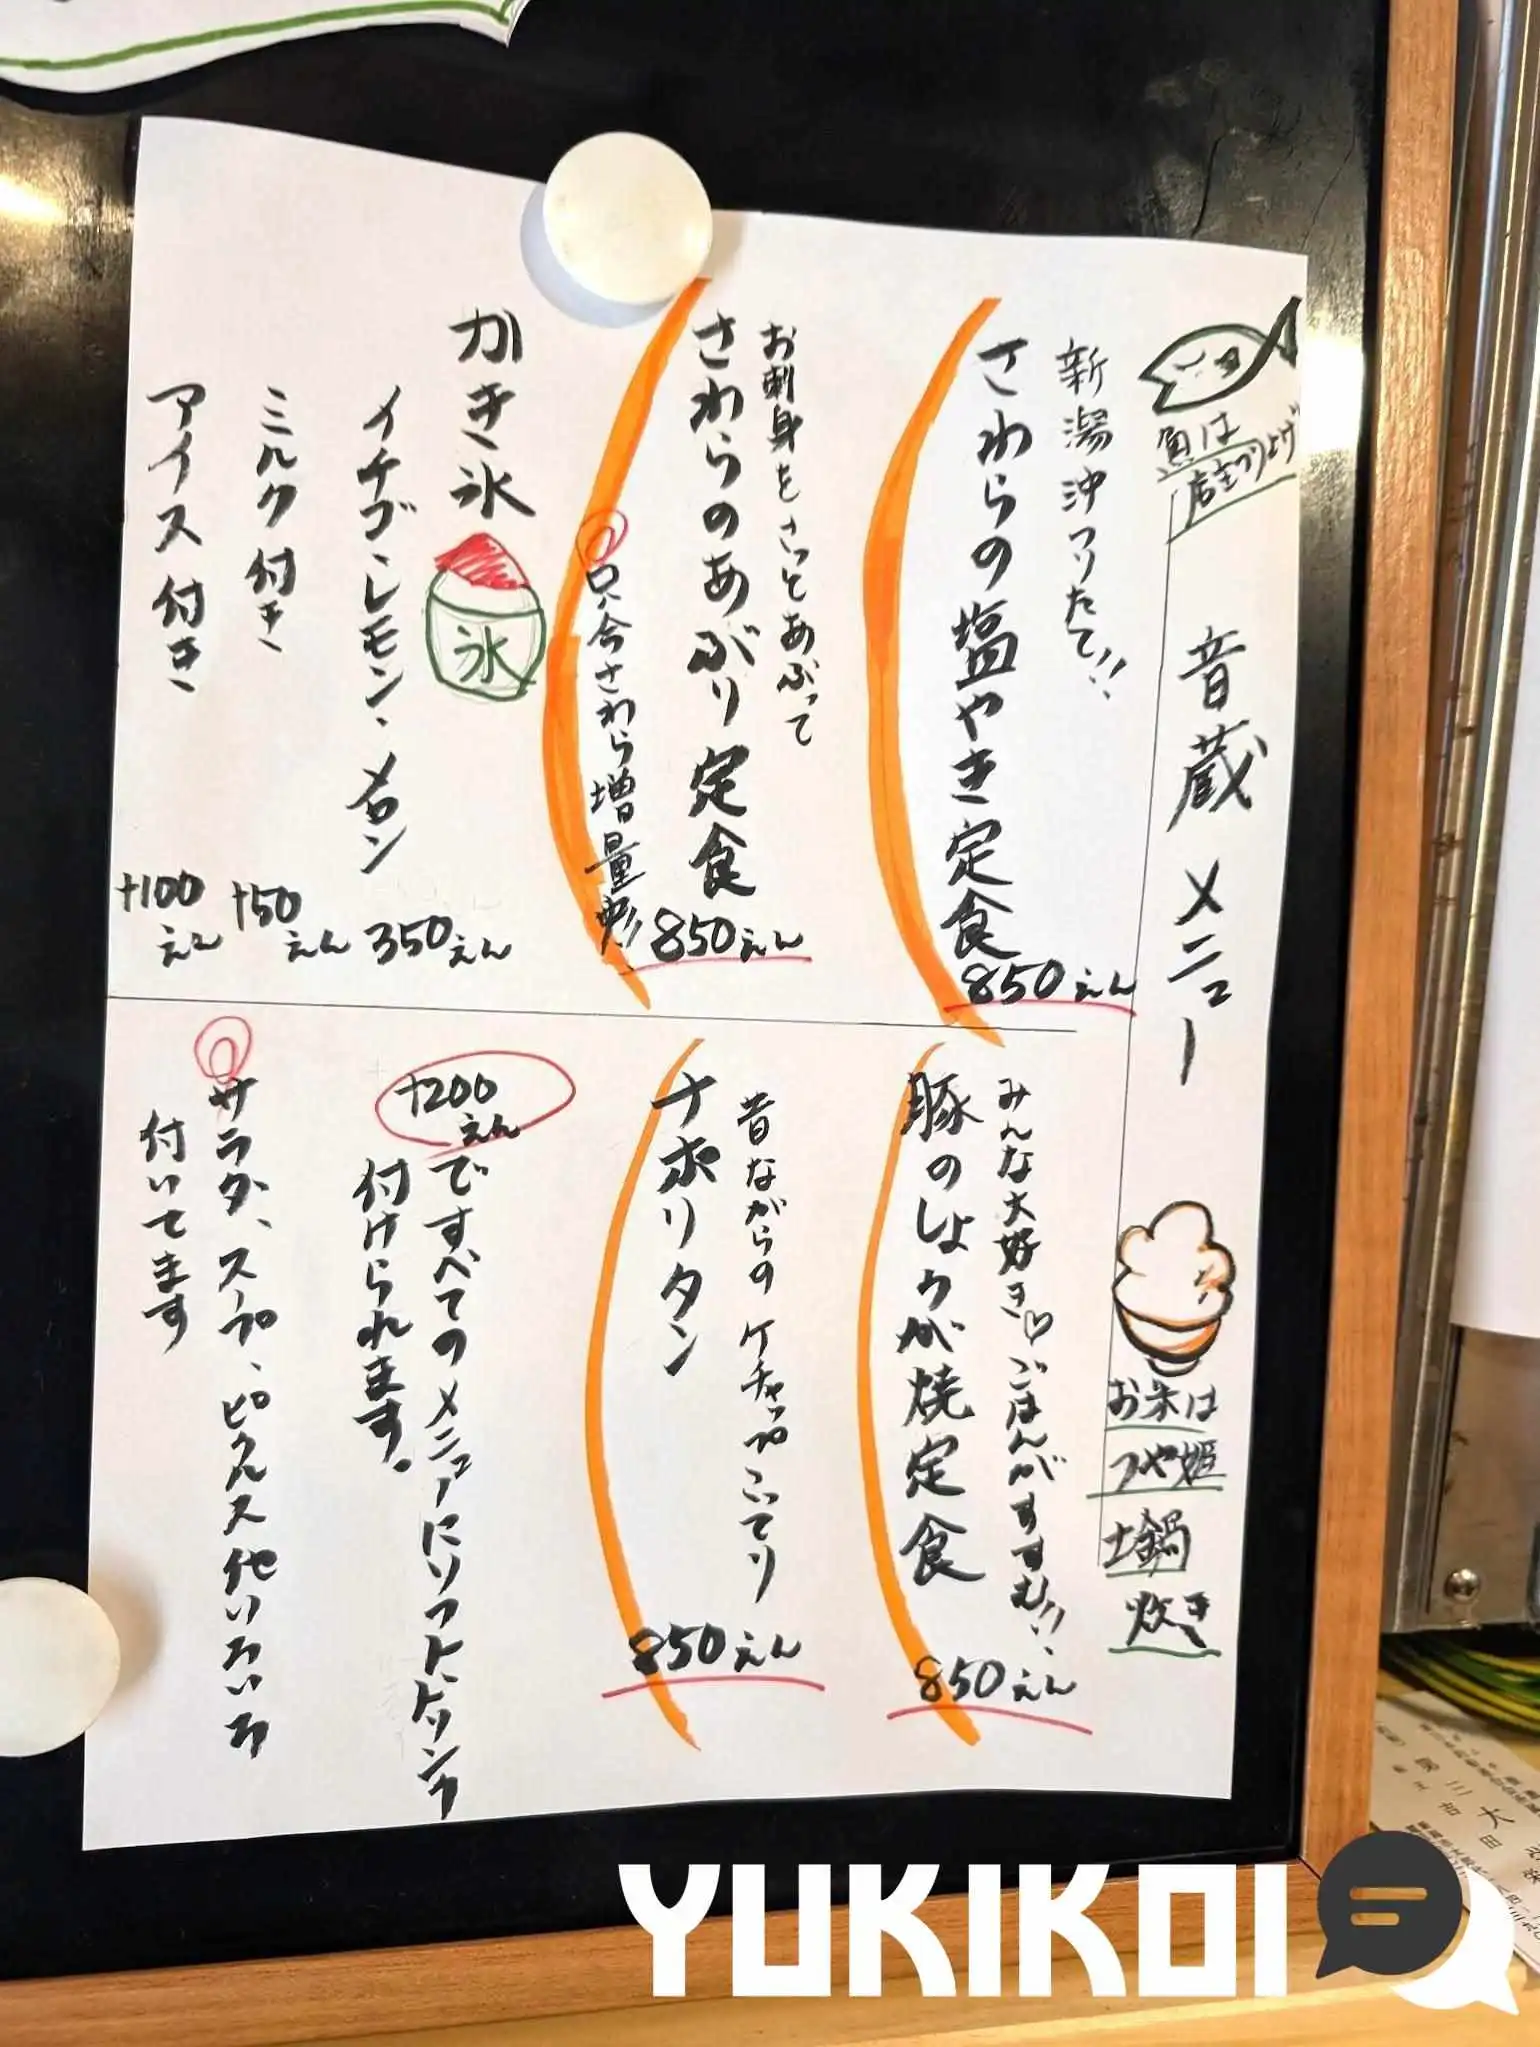 魚は
店主つり上げ
音蔵 メニュー
お米は
つや姫
土鍋
炊き
新潟沖つりたて!!
さわらの塩やき定食
850えん
お刺身をさっとあぶって
さわらのあぶり定食
850えん
只今さわら増量中!!
かき氷
氷
イチゴ、レモン、メロン
350えん
ミルク付き
+50えん
アイス付き
+100えん
みんな大好き♡ごはんがすすむ!!
豚のしょうが焼定食
850えん
昔ながらのケチャップこってり
ナポリタン
850えん
+200えんですべてのメニューにソフトドリンク
付けられます。
サラダ、スープ、ピクルス他いろいろ
付いてます
YUKIKOI